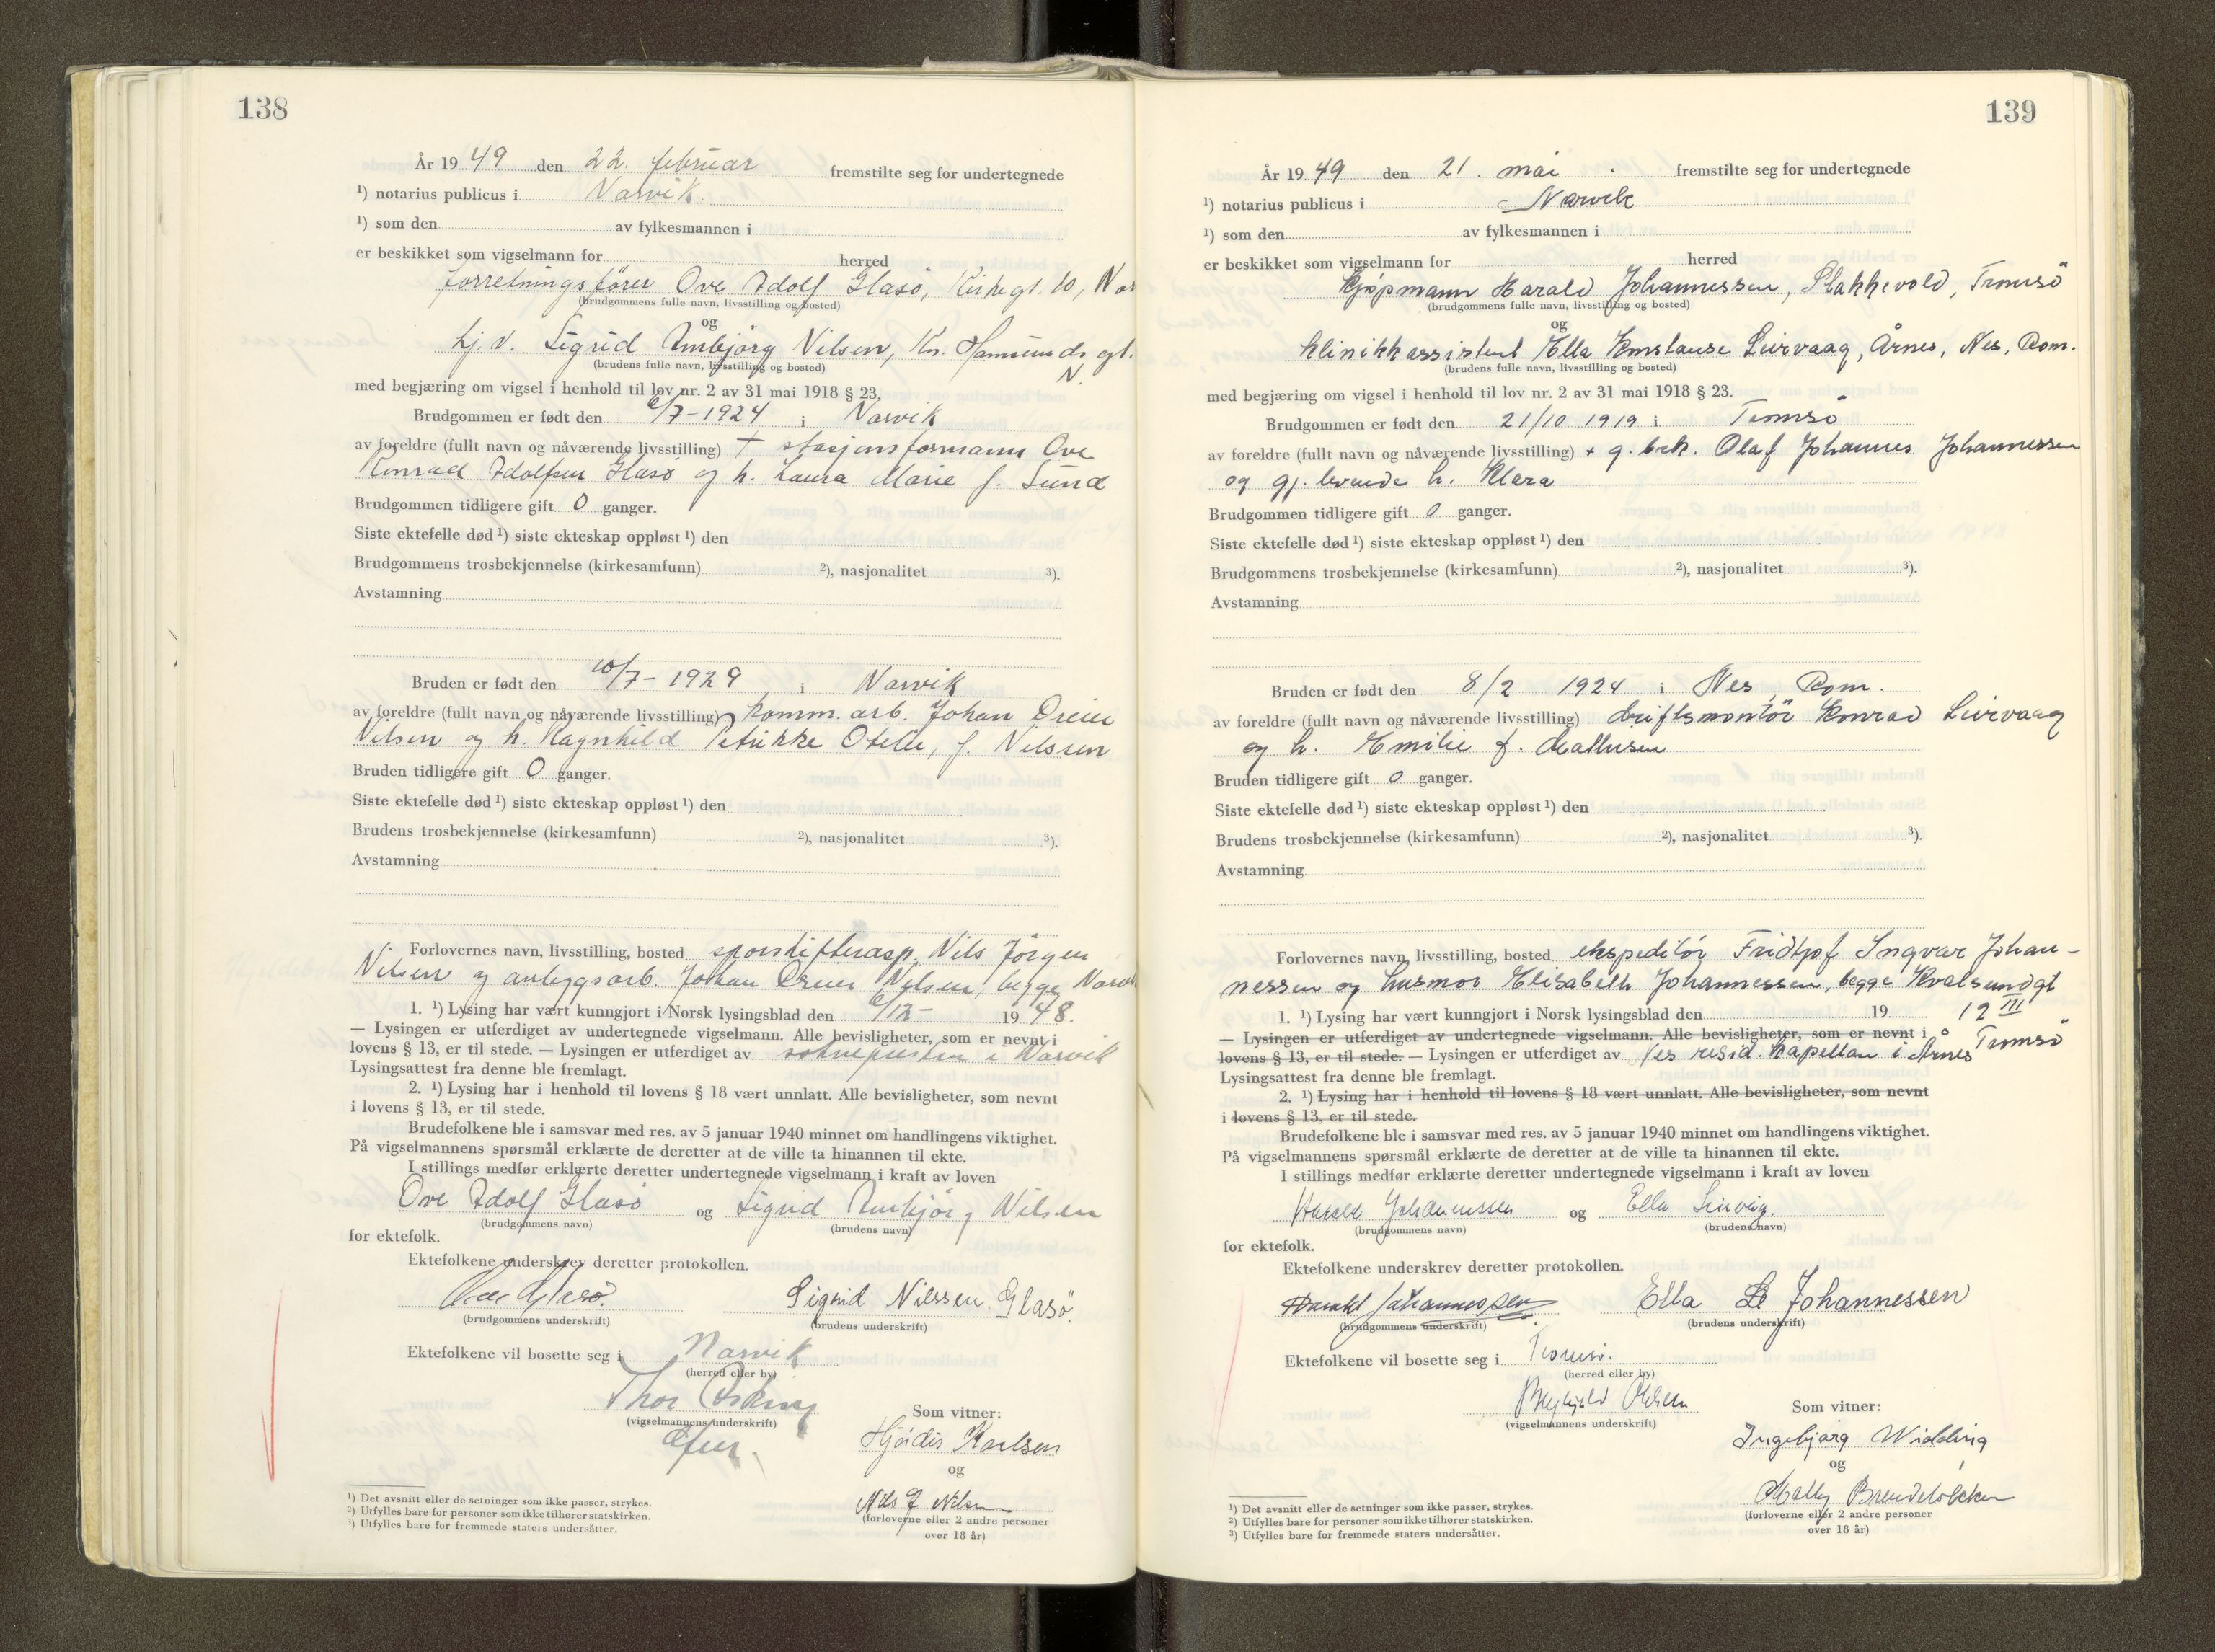 138
År 19 49 den 22. februar fremstilte seg for undertegnede
¹) notarius publicus i Narvik.
¹) som den av fylkesmannen i
er beskikket som vigselmann for herred
forretningsfører Ove Adolf Glasö, Kirkegt. 10, Nar
(brudgommens fulle navn, livsstilling og bosted)
og
hj.v. Sigrid Annbjörg Nilsen, Kn. Hamsunds gt.
(brudens fulle navn, livsstilling og bosted)
N.
med begjæring om vigsel i henhold til lov nr. 2 av 31 mai 1918 § 23.
Brudgommen er født den 6/7-1924 i Narvik
av foreldre (fullt navn og nåværende livsstilling) + stasjonsformann Ove
Konrad Adolfsen Glasö og h. Laura Marie f. Sund
Brudgommen tidligere gift 0 ganger.
Siste ektefelle død ¹) siste ekteskap oppløst ¹) den
Brudgommens trosbekjennelse (kirkesamfunn) ²), nasjonalitet ³).
Avstamning
Bruden er født den 10/7- 1929 i Narvik
av foreldre (fullt navn og nåværende livsstilling) komm. arb. Johan Dreier
Nilsen og h. Ragnhild Petrikke Otelie, f. Nilssen
Bruden tidligere gift 0 ganger.
Siste ektefelle død ¹) siste ekteskap oppløst ¹) den
Brudens trosbekjennelse (kirkesamfunn) ²), nasjonalitet ³).
Avstamning
Forlovernes navn, livsstilling, bosted sporskifterasp. Nils Jörgen
Nilsen og anleggsarb. Johan Dreier Nilsen, begge Narvik
1. ¹) Lysing har vært kunngjort i Norsk lysingsblad den 6/12- 19 48.
— Lysingen er utferdiget av undertegnede vigselmann. Alle bevisligheter, som er nevnt i
lovens § 13, er til stede. — Lysingen er utferdiget av sokneprsten i Narvik
Lysingsattest fra denne ble fremlagt.
2. ¹) Lysing har i henhold til lovens § 18 vært unnlatt. Alle bevisligheter, som nevnt
i lovens § 13, er til stede.
Brudefolkene ble i samsvar med res. av 5 januar 1940 minnet om handlingens viktighet.
På vigselmannens spørsmål erklærte de deretter at de ville ta hinannen til ekte.
I stillings medfør erklærte deretter undertegnede vigselmann i kraft av loven
Ove Adolf Glasö og Sigrid Annbjörg Nilsen
(brudgommens navn) (brudens navn)
for ektefolk.
Ektefolkene underskrev deretter protokollen.
Ove Glasö. Sigrid Nilssen. Glasö.
(brudgommens underskrift) (brudens underskrift)
Ektefolkene vil bosette seg i Narvik
(herred eller by)
Thor
(vigselmannens underskrift)
Som vitner:
Hjördis Karlsen
og
Nils J Nilsen
(forloverne eller 2 andre personer
over 18 år)
¹) Det avsnitt eller de setninger som ikke passer, strykes.
²) Utfylles bare for personer som ikke tilhører statskirken.
³) Utfylles bare for fremmede staters undersåtter.
139
År 19 49 den 21. mai fremstilte seg for undertegnede
¹) notarius publicus i Narvik
¹) som den av fylkesmannen i
er beskikket som vigselmann for herred
Kjøpmann Harald Johannessen, Slakkevold, Tromsö
(brudgommens fulle navn, livsstilling og bosted)
og
klinikkassistent Ella Konstanse Leirvaag, Årnes, Nes, Rom.
(brudens fulle navn, livsstilling og bosted)
med begjæring om vigsel i henhold til lov nr. 2 av 31 mai 1918 § 23.
Brudgommen er født den 21/10 1919 i Tromsö
av foreldre (fullt navn og nåværende livsstilling) + g.brk. Olaf Johannes Johannessen
og gj. levende h. Klara
Brudgommen tidligere gift 0 ganger.
Siste ektefelle død ¹) siste ekteskap oppløst ¹) den
Brudgommens trosbekjennelse (kirkesamfunn) ²), nasjonalitet ³).
Avstamning
Bruden er født den 8/2 1924 i Nes, Rom.
av foreldre (fullt navn og nåværende livsstilling) driftsmontör Konrad Leirvaag
og h. Emilie f. Mathisen
Bruden tidligere gift 0 ganger.
Siste ektefelle død ¹) siste ekteskap oppløst ¹) den
Brudens trosbekjennelse (kirkesamfunn) ²), nasjonalitet ³).
Avstamning
Forlovernes navn, livsstilling, bosted ekspeditör Fridtjof Ingvar Johan-
nessen og husmor Elisabeth Johannessen, begge Kvalsundgt
1. ¹) Lysing har vært kunngjort i Norsk lysingsblad den 19 12 III
— Lysingen er utferdiget av undertegnede vigselmann. Alle bevisligheter, som er nevnt i Tromsö
lovens § 13, er til stede. — Lysingen er utferdiget av res. kapellan i Årnes
Lysingsattest fra denne ble fremlagt.
2. ¹) Lysing har i henhold til lovens § 18 vært unnlatt. Alle bevisligheter, som nevnt
i lovens § 13, er til stede.
Brudefolkene ble i samsvar med res. av 5 januar 1940 minnet om handlingens viktighet.
På vigselmannens spørsmål erklærte de deretter at de ville ta hinannen til ekte.
I stillings medfør erklærte deretter undertegnede vigselmann i kraft av loven
Harald Johannessen og Ella Leirvåg.
(brudgommens navn) (brudens navn)
for ektefolk.
Ektefolkene underskrev deretter protokollen.
Harald Johannessen Ella Le Johannessen
(brudgommens underskrift) (brudens underskrift)
Ektefolkene vil bosette seg i Tromsö.
(herred eller by)
(vigselmannens underskrift)
Som vitner:
Ingebjørg Widding
og
(forloverne eller 2 andre personer
over 18 år)
¹) Det avsnitt eller de setninger som ikke passer, strykes.
²) Utfylles bare for personer som ikke tilhører statskirken.
³) Utfylles bare for fremmede staters undersåtter.